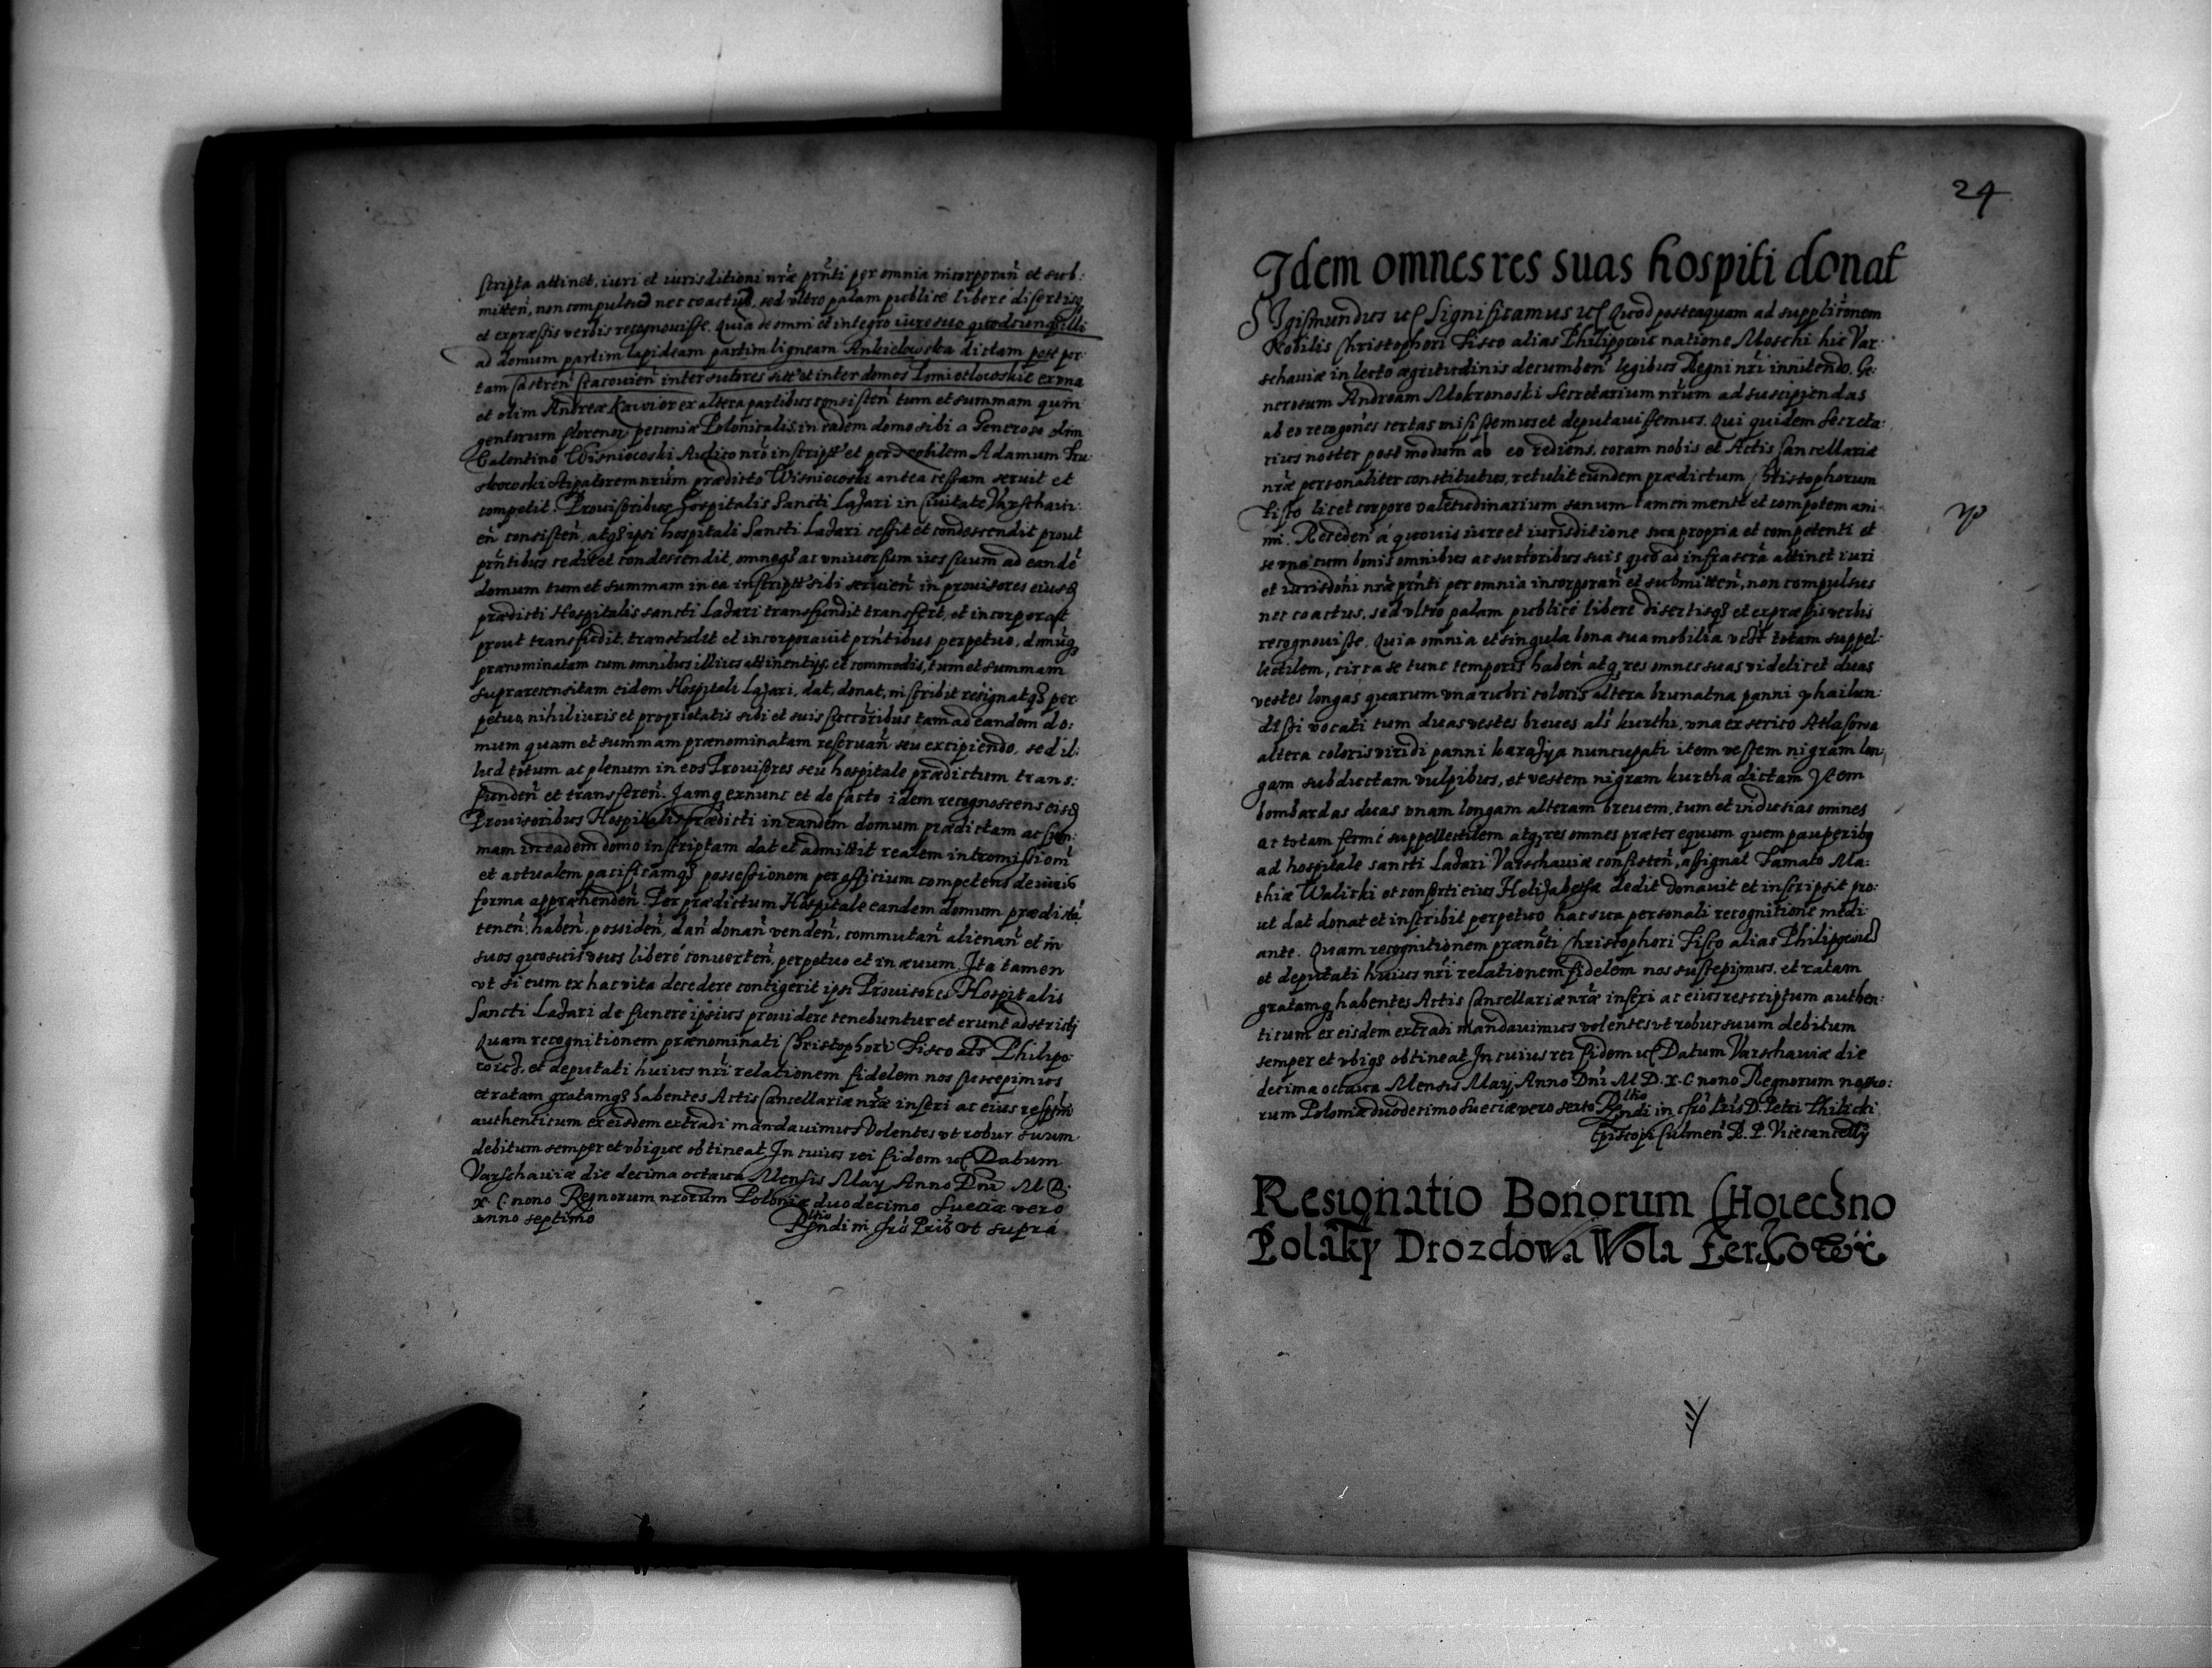 scripta attinet, iuri et iurisditioni nr̃æ pr̃nti per omnia incorporan̄ et sub:
mitten̄, non compulsus nec coactus, sed vltro palam publicé liberé disertisq
et expræssis verbis recognouisse. Quia de omni et integro iure suo quodcunq illi
ad domum partim lapideam partim ligneam Ankielowska dictam post por:
tam Castren̄ Cracouien̄ inter sutores et inter domos exvna
et olim Andreæ Kawior ex altera partibus consisten̄ tum et summam quin
gentorum florenor pecuniæ Polonicalis in eadem domo sibi a Generoso olim
Valentino Wisniowski Aulico nr̃o inscript et per Nobilem Adamum
Stipatorem nr̃um prædicto Wisniowski antea cessam seruit et
competit. Prouisoribus Hospitalis Sancti Lazari in Ciuitate Varschaui:
en̄ consisten̄, atq3 ipsi hospitali Sancti Lazari cessit et condescendit prout
pr̃ntibus cedit et condescendit, omneq3 ac vniuersum ius suum ad eandē
domum tum et summam in ea inscript sibi seruien̄ in prouisores eiusd
prædicti Hospitalis sancti Lazari transfundit transfert, et incorporat
prout transfudit, transtulit et incorporauit pr̃ntibus perpetuo, domuq
prænominatam cum omnibus illius attinentijs, et commodis, tum et summam
suprarecensitam eidem Hospitali Lazari, dat, donat, inscribit resignatq3 per
petuo, nihil iuris et proprietatis sibi et suis succoribus tam ad eandem do:
mum quam et summam prænominatam reseruan̄ seu excipiendo, sed il:
lud totum ac plenum in eos Prouisores seu hospitale prædictum trans:
funden̄ et transferen̄. Jamq exnunc et de facto idem recognoscens eisd
Prouisoribus Hospitalis prædicti in eandem domum prædictam ac sum:
mam in eadem domo inscriptam dat et admittit realem intromissionē
et actualem pacificamq3 possessionem per officium competens de iuris
forma appræhenden̄. Per prædictum Hospitale eandem domum prædictā
tenen̄, haben̄, possiden̄, dan̄ donan̄ venden̄, commutan̄ alienan̄ et in
suos quosuis vsus liberé conuerten̄, perpetuo et in æuum. Ita tamen
vt si eum ex hac vita decedere contigerit ipsi Prouisores Hospitalis
Sancti Lazari de funere ipsius prouidere tenebuntur et erunt adstricti
Quam recognitionem prænominati Christophori Fisco als̃ Philipo:
wicz, et deputati huius nr̃i relationem fidelem nos suscepimus
et ratam gratamq3 habentes Actis Cancellariæ nr̃æ inseri ac eius
authenticum ex eisdem extradi mandauimus Volentes vt robur suum
debitum semper et vbique obtineat. In cuius rei fidem Datum
Varschauiæ die decima octaua Mensis May Anno Dn̄i M D:
x. C. nono Regnorum nr̃orum Poloniæ duodecimo Sueciæ vero
anno septimo
vt supra
24
Idem omnes res suas hospiti donat
Sigismundus Significamus Quod posteaquam ad supplicōnem
Nobilis Christophori Fisco alias Philipowic natione Moschi hic Var:
schauiæ in lecto ægritudinis decumben̄ legibus Regni nr̃i innitendo. Ge:
nerosum Andream Mokronoski Secretarium nr̃um ad suscipiendas
ab eo recogōnes certas misissemus et deputauissemus. Qui quidem Secreta:
rius noster post modum ab eo rediens, coram nobis et Actis Cancellariæ
nr̃æ personaliter constitutus, retulit eundem prædictum Christophorum
Fisco licet corpore valetudinarium sanum tamen mente et compotem ani
mi. Receden̄ á quouis iure et iurisditione sua propria et competenti et
se vna cum bonis omnibus ac suctoribus suis quo ad infrascrā attinet iuri
et iurisdoni nr̃æ pr̃nti per omnia incorporan̄ et submitten̄, non compulsus
nec coactus, sed vltro palam publicé liberé disertisq3 et expræssis verbis
recognouisse. Quia omnia et singula bona sua mobilia totam suppel:
lectilem, circa se tunc temporis haben̄ atq res omnes suas videlicet duas
vestes longas quarum vna rubri coloris altera brunatna panni phailun:
dissi vocati tum duas vestes breues als̃ kurthi, vna ex serico Atlasowa
altera coloris viridi panni karazya nuncupati item vestem nigram lon:
gam subductam vulpibus, et vestem nigram kurtha dictam Item
bombardas duas vnam longam alteram breuem, tum et indusias omnes
ac totam fermé suppellectilem atq res omnes præter equum quem pauperibq
ad hospitale sancti Lazari Varschauiæ consisten̄, assignat Famato Ma:
thiæ Walicki et consorti eius Helizabetha dedit donauit et inscripsit pro:
ut dat donat et inscribit perpetuo hac sua personali recognitione medi
ante. Quam recognitionem prænoti Christophori Fisco alias Philipowicz
et deputati huius nr̃i relationem fidelem nos suscepimus, et ratam
gratamq habentes Actis Cancellariæ nr̃æ inseri ac eius rescriptum authen:
ticum ex eisdem extradi mandauimus volentes vt robur suum debitum
semper et vbiq3 obtineat. In cuius rei fidem Datum Varschauiæ die
decima octaua Mensis May Anno Dn̄i M D. x. C nono Regnorum nostro:
rum Poloniæ duodecimo Sueciæ vero sexto D. Petri Thilicki
Episcopi Culmen̄ R. P. Vicecancellij
Resignatio Bonorum Choieczno
Polaky Drozdowa Wola